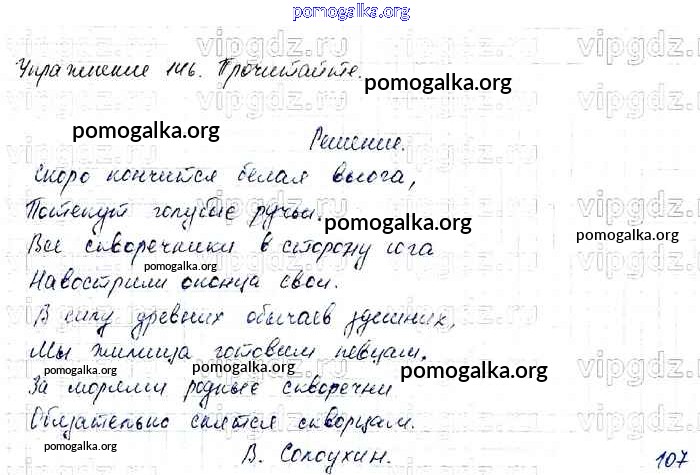 pomogalka.org
vipgdz.ru vipgdz.ru vipgdz.ru
Упражнение 146. Прочитайте.
pomogalka.org
pomogalka.org
Решение.
Скоро кончится белая вьюга,
Потекут голубые ручьи.
pomogalka.org
Все скворечники в сторону юга
pomogalka.org
pomogalka.org
Навострили оконца свои.
В силу древних обычаев здешних,
Мы жилища готовим певцам.
pomogalka.org pomogalka.org pomogalka.org
За морями родные скворечни
Обязательно снятся скворцам.
pomogalka.org pomogalka.org
В. Солоухин.
107